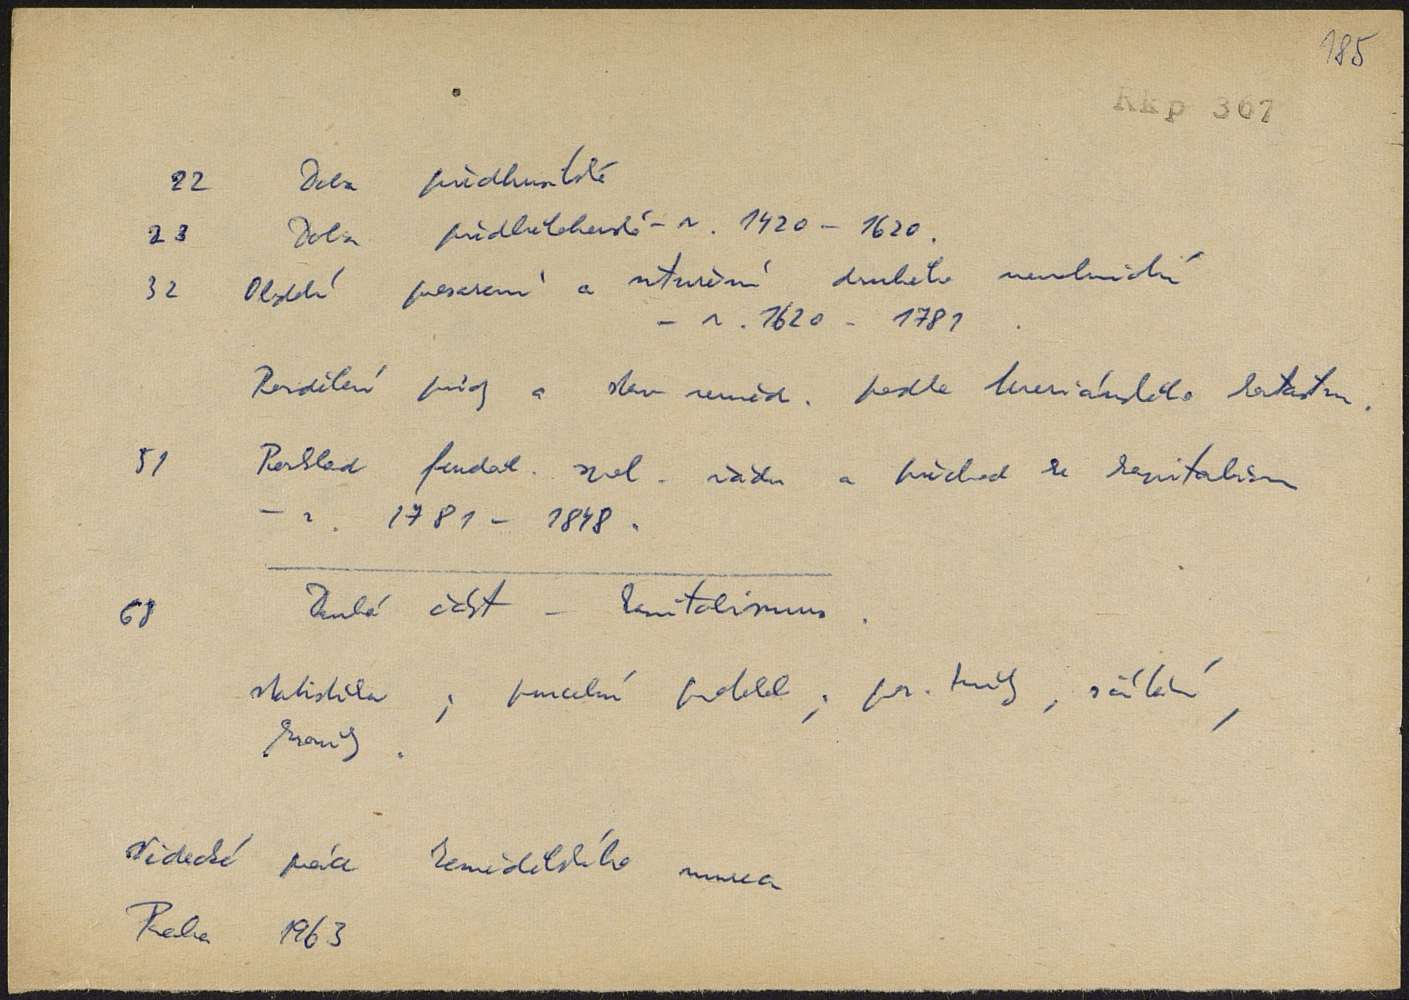 185
Rkp 367
22 Doba předhusitská
23 Doba předbělohorská - r. 1420 - 1620.
32 Období a utužení druhého nevolnictví
- r. 1620 - 1781
Rozdělení půdy a stav zeměd. podle tereziánského katastru.
51 Rozklad feudal. spol. řádu a přechod ke kapitalismu
- r. 1781 - 1848.
68 Druhá část - Kapitalismus.
statistika ; parcelní protokol ; poz. knihy, sčítání,
kroniky.
Vědecké práce Zemědělského muzea
Praha 1963